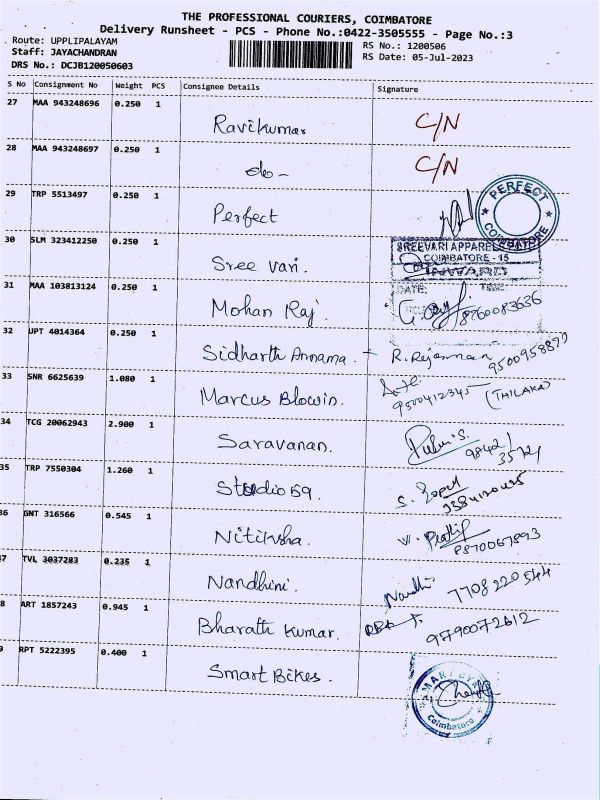 THE PROFESSIONAL COURIERS, COIMBATORE
Delivery Runsheet - PCS - Phone No.:0422-3505555 - Page No.:3
Route: UPPLIPALAYAM RS No.: 1200506
Staff: JAYACHANDRAN RS Date: 05-Jul-2023
DRS No.: DCJB120050603
S No Consignment No Weight PCS Consignee Details Signature
27 MAA 943248696 0.250 1 Ravikumar C/N
28 MAA 943248697 0.250 1 do- C/N
29 TRP 5513497 0.250 1 Perfect
PERFECT
COIMBATORE
30 SLM 323412250 0.250 1 Sree vari.
SREEVARI APPARELS
COIMBATORE - 15
INWARD
DATE: TIME:
31 MAA 103813124 0.250 1 Mohan Raj 8760083636
32 UPT 4014364 0.250 1 Sidharth Annama. - R.
33 SNR 6625639 1.080 1 Marcus Blowin. 9500412345 (THILAKA)
34 TCG 20062943 2.900 1 Saravanan. 98421 35721
35 TRP 7550304 1.260 1 Studio 59.
36 GNT 316566 0.545 1 Nitiksha. V.
37 TVL 3037283 0.235 1 Nandhini. Nandhi 7708220544
38 ART 1857243 0.945 1 Bharath kumar. 9790072612
39 RPT 5222395 0.400 1 Smart Bikes.
Coimbatore